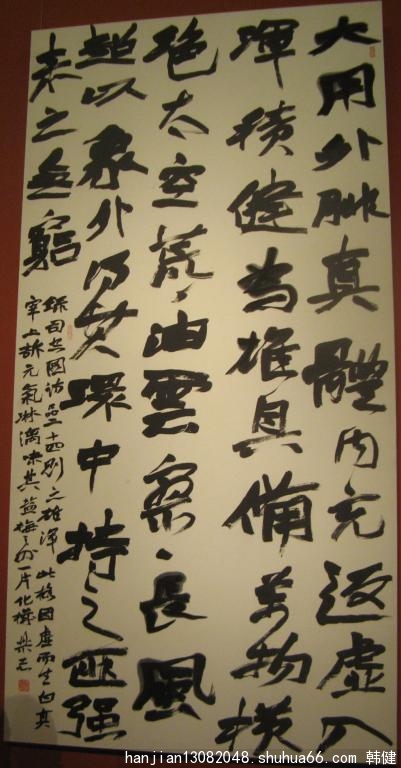 大用外腓真體内充返虛入
渾積健為雄具備萬物橫
絕太空荒、油雲寥、長風
超以象外得其環中持之匪强
来之無窮
司空圖詩品二十四則之雄渾 此格因虛而生
宰上訴元氣淋漓味其 梅之外一片化機
hanjian13082048.shuhua66.com 韩健